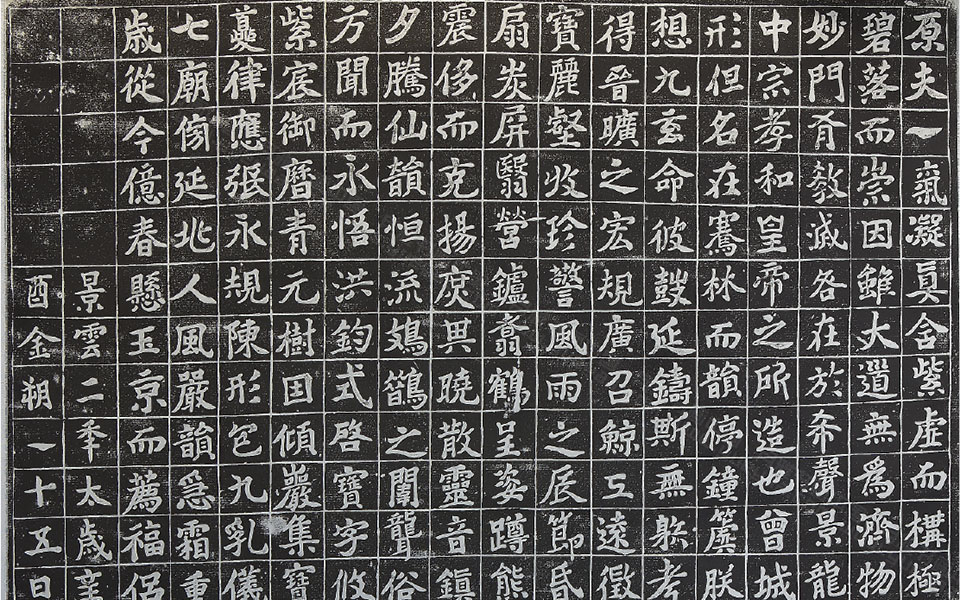 原夫一氣凝真含紫虛而構極
碧落而崇因雖大道無為濟物
妙門有教誡各在於希聲景龍
中宗孝和皇帝之所造也曾城
形但名在騫林而韻停鐘簴朕
想九玄命彼鼓延鑄斯無躬考
得晉曠之宏規廣召鯨工遠徵
寶麗壑收珍警風雨之辰節昏
扇炭屏翳營鑪翥鶴呈姿蹲熊
震侈而克揚庶其曉散靈音鎮
夕騰仙韻恒流鳷鵲之闈聾俗
方聞而永悟洪鈞式啓寶字攸
紫宸御曆青元樹因傾巖集寶
夔律應張永規陳形包九乳儀
七廟傍延兆人風嚴韻急霜重
歲從今億春懸玉京而薦福侶
景雲二年太歲辛
酉金朔一十五日